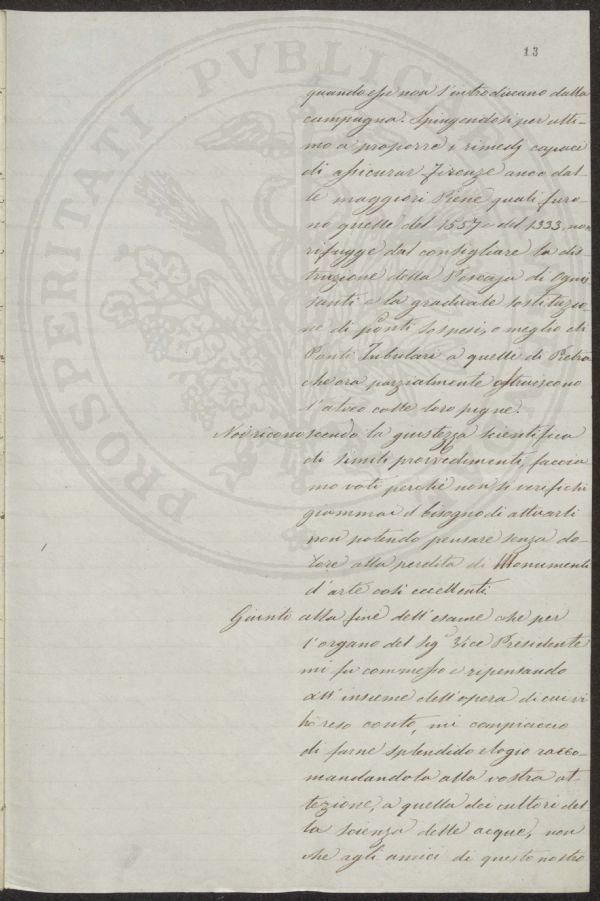 13
PROSPERITATI PVBLICAE
quando esse non s'introducano dalla
campagna. Spingendosi per ulti-
mo a proporre i rimedj capaci
di assicurar Firenze anco dal-
le maggiori Piene quali furo-
no quelle del 1557 e del 1333, non
rifugge dal consigliare la dis-
truzione della Pescaja di Ognis-
santi e la graduale sostituzio-
ne di ponti sospesi, o meglio di
Ponti Tubulari a quelle di Pietra
che ora parzialmente ostruiscono
l'alveo colle loro pigne.
Noi riconoscendo la giustezza scientifica
di simili provvedimenti, faccia-
mo voti perché non si verifichi
giammai il bisogno di attuarli
non potendo pensare senza do-
lore alla perdita di Monumenti
d'arte così eccellenti.
Giunti alla fine dell'esame che per
l'organo del Sigr Vice Presidente
mi fu commesso e ripensando
all'insieme dell'opera di cui vi
hò reso conto, mi compiaccio
di farne splendido elogio racco-
mandandola alla vostra at-
tezione, a quella dei cultori del-
la scienza delle acque, non
che agli amici di questo nostro